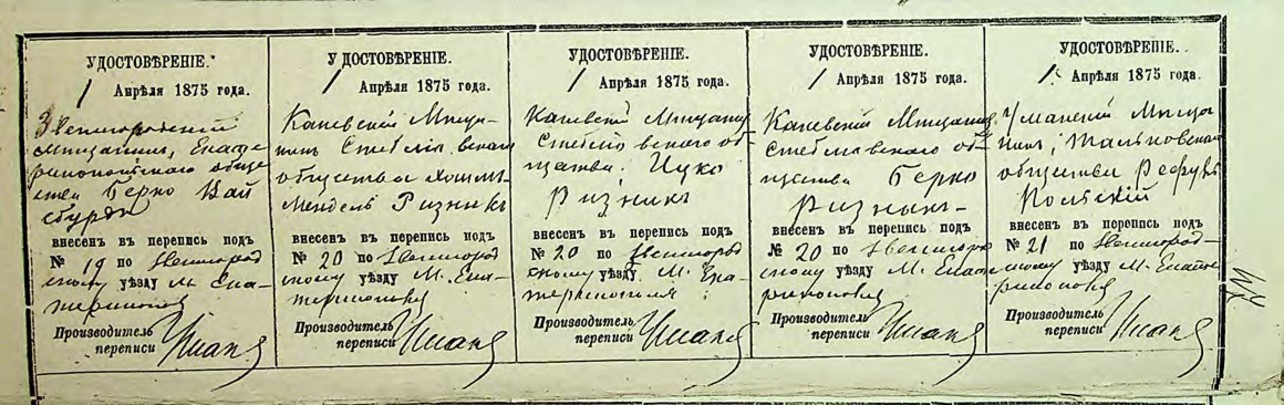 УДОСТОВѢРЕНІЕ.
1 Апрѣля 1875 года.
Звенигородскій
мѣщанинъ, Екате
ринопольскаго обще
ства Берко Вай
сбурдъ
внесенъ въ перепись подъ
№ 19 по Звенигород
скому уѣзду м. Ека-
теринополь
Производитель
переписи
УДОСТОВѢРЕНІЕ.
1 Апрѣля 1875 года.
Каневскій Мѣща-
нинъ Стеблевскаго
общества
Мендель Ризникъ
внесенъ въ перепись подъ
№ 20 по Звенигород
скому уѣзду М. Ека-
теринополь
Производитель
переписи
УДОСТОВѢРЕНІЕ.
1 Апрѣля 1875 года.
Каневскій Мѣщанин
Стеблевскаго об-
щества Ицко
Ризникъ
внесенъ въ перепись подъ
№ 20 по Звенигород
скому уѣзду М. Ека-
теринополя
Производитель
переписи
УДОСТОВѢРЕНІЕ.
1 Апрѣля 1875 года.
Каневскій Мѣщанин
Стеблевскаго об-
щества Берко
Ризникъ
внесенъ въ перепись подъ
№ 20 по Звениго
скому уѣзду М. Екате
ринополь
Производитель
переписи
УДОСТОВѢРЕНІЕ.
1 Апрѣля 1875 года.
Уманскій Мѣща
нинъ, Тальновскаго
общества Рефулъ
Польскій
внесенъ въ перепись подъ
№ 21 по Звенигород-
скому уѣзду М. Екате
ринополь
Производитель
переписи